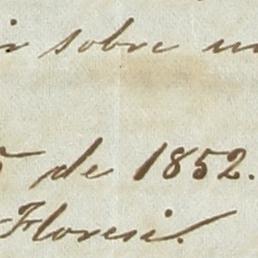 ir sobre un
5 de 1852.
Floresi.